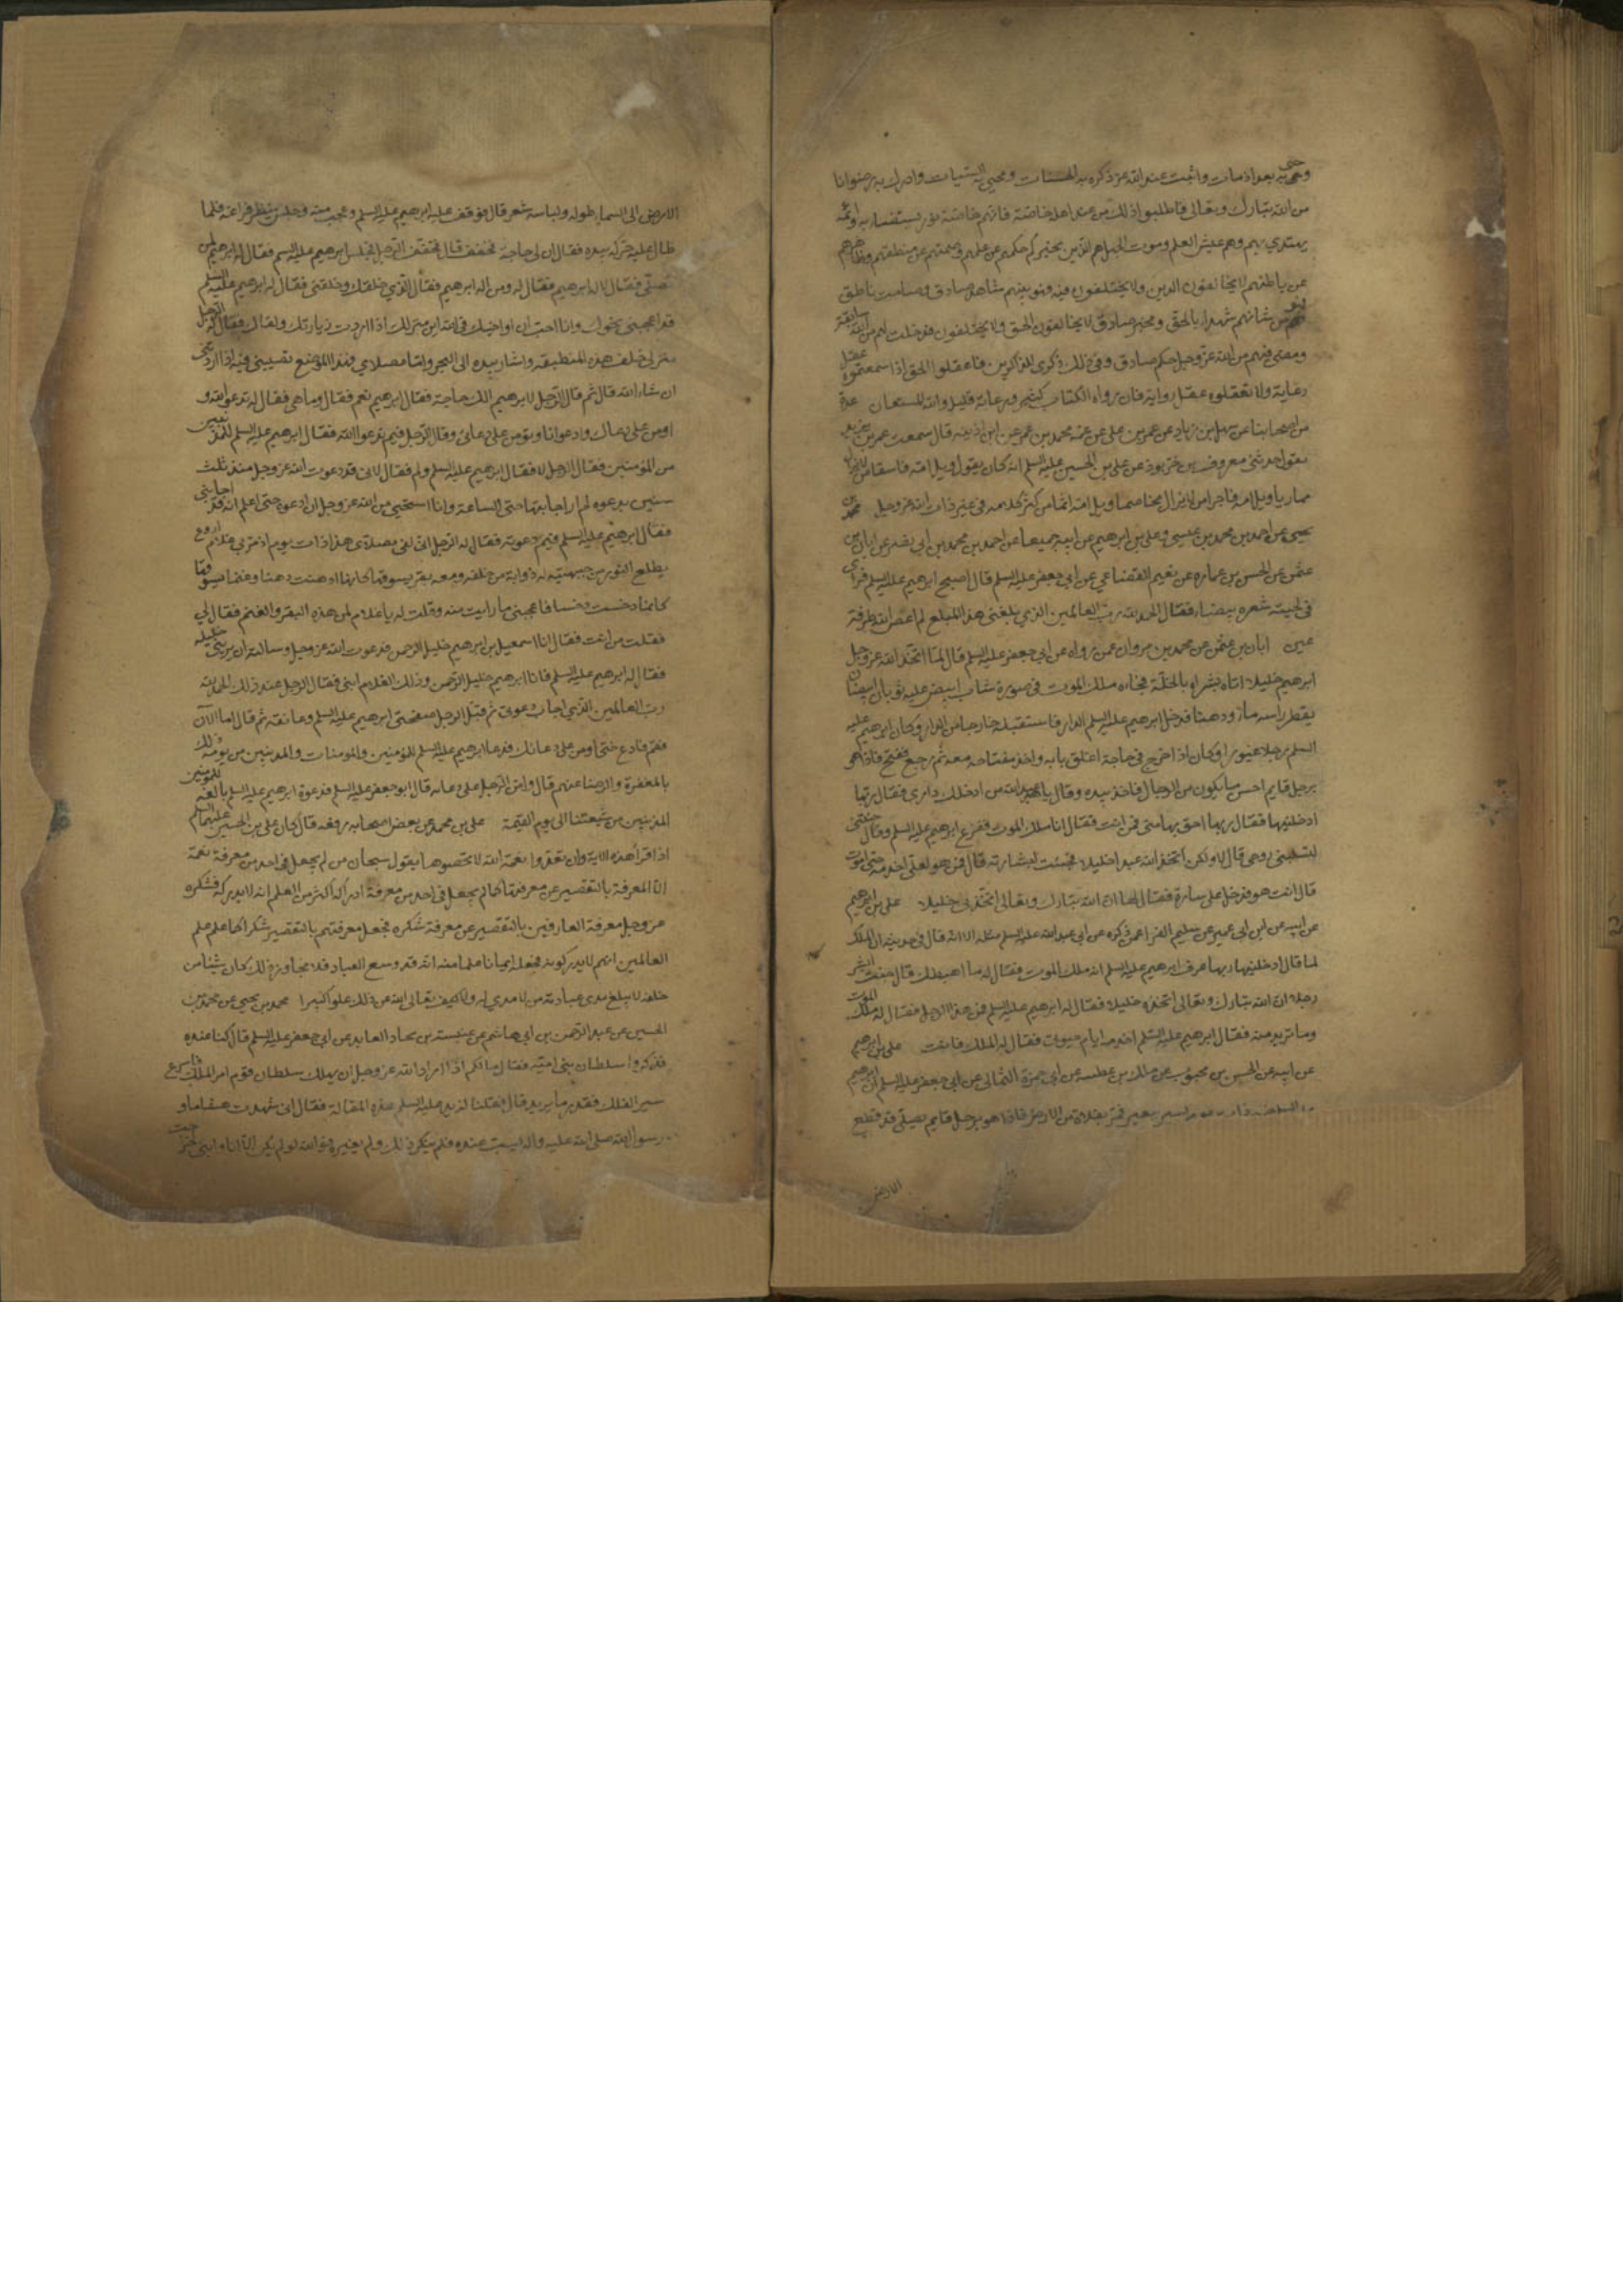 وحمى به بعد اذ مات واثبت عند الله عز ذكره به الحسنات ومحى به السيئات وادرك به رضوانا
من الله تبارك وتعالى فاطلبوا ذلك من عند اهله خاصة فانهم خاصة نور يستضاء به وائمة
يهتدي بهم وهم عيش العلم وموت الجهل هم الذين يخبركم حكمهم عن علمهم وصمتهم عن منطقهم وظاهرهم
عن باطنهم لا يخالفون الدين ولا يختلفون فيه فهو بينهم شاهد صادق وصامت ناطق
فهو من شانهم شهداء بالحق ومخبر صادق لا يخالفون الحق ولا يختلفون فيه قد خلت لهم من الله سابقة
ومضى فيهم من الله عز وجل حكم صادق وفي ذلك ذكرى للذاكرين فاعقلوا الحق اذا سمعتموه عقل
رعاية ولا تعقلوه عقل رواية فان رواة الكتاب كثير ورعاته قليل والله المستعان عدة
من اصحابنا عن سهل بن زياد عن عمر بن علي عن عمه محمد بن عمر عن ابن اذينه قال سمعت عمر بن يزيد
يقول حدثني معروف بن خربوذ عن علي بن الحسين عليه السلم انه كان يقول ويل امه فاسقا من لا يزال
مماريا ويل امه فاجرا من لا يزال مخاصما ويل امه اثما من كثر كلامه في غير ذات الله عز وجل محمد بن
يحيى عن احمد بن محمد بن عيسى وعلي بن ابرهيم عن ابيه جميعا عن احمد بن محمد بن ابي نصر عن ابان بن
عثمن عن الحسن بن عماره عن نعيم القضاعي عن ابي جعفر عليه السلم قال اصبح ابرهيم عليه السلم فراى
في لحيته شعره بيضاء فقال الحمد لله رب العالمين الذي بلغني هذا المبلغ لم اعص الله طرفة
عين ابان بن عثمن عن محمد بن مروان عمن رواه عن ابي جعفر عليه السلم قال لما اتخذ الله عز وجل
ابرهيم خليلا اتاه بشراه بالخلة فجاءه ملك الموت في صورة شاب ابيض عليه ثوبان ابيضان
يقطر راسه ماء ودهنا فدخل ابرهيم عليه السلم الدار فاستقبله خارجا من الدار وكان ابرهيم عليه
السلم رجلا غيورا وكان اذا خرج في حاجة اغلق بابه واخذ مفتاحه معه ثم رجع ففتح فاذا هو
برجل قايم احسن ما يكون من الرجال فاخذ بيده وقال يا عبد الله من ادخلك داري فقال ربها
ادخلنيها فقال ربها احق بها مني فمن انت فقال انا ملك الموت ففزع ابرهيم عليه السلم وقال جئتني
لتسلبني روحي قال لا ولكن اتخذ الله عبدا خليلا فجئت لبشارته قال فمن هو لعلي اخدمه حتى اموت
قال انت هو فدخل على سارة فقال لها ان الله تبارك وتعالى اتخذني خليلا علي بن ابرهيم
عن ابيه عن ابن ابي عمير عن سليم الفراء عمن ذكره عن ابي عبد الله عليه السلم مثله الا انه قال في حديثه ان الملك
لما قال ادخلنيها ربها عرف ابرهيم عليه السلم انه ملك الموت فقال له ما اهبطك قال جئت ابشر
رجلا ان الله تبارك وتعالى اتخذه خليلا فقال له ابرهيم عليه السلم فمن هذا الرجل فقال له ملك الموت
وما تريد منه فقال ابرهيم عليه السلم اخدمه ايام حيوتي فقال له الملك فانت علي بن ابرهيم
عن ابيه عن الحسن بن محبوب عن ملك بن عطيه عن ابي حمزة الثمالي عن ابي جعفر عليه السلم ان ابرهيم
يسير ببعير فمر بفلاة من الارض فاذا هو برجل قايم يصلي قد قطع
الارض
الارض الى السماء طوله ولباسه شعر قال فوقف عليه ابرهيم عليه السلم وعجب منه وجلس ينتظر فراغه فلما
طال عليه حركه بيده فقال ان لي حاجة فخفف قال فخفف الرجل فجلس ابرهيم عليه السلم فقال له ابرهيم لمن
تصلي فقال لاله ابرهيم فقال له ومن اله ابرهيم فقال الذي خلقك وخلقني فقال له ابرهيم عليه السلم
قد اعجبني نحوك وانا احب ان اواخيك في الله اين منزلك اذا اردت زيارتك ولقاك فقال له الرجل
منزلي خلف هذه النطيفة واشار بيده الى البحر واما مصلاي فهذا الموضع تصيبني فيه اذا اردتني
ان شاء الله قال ثم قال الرجل لابرهيم الك حاجة فقال ابرهيم نعم فقال وما هي فقال له تدعو الله و
اومن على دعائك وادعو انا وتومن على دعائي وقال الرجل فيم ندعو الله فقال ابرهيم عليه السلم للمذنبين
من المؤمنين فقال الرجل لا فقال ابرهيم عليه السلم ولم فقال لاني قد دعوت الله عز وجل منذ ثلث
سنين بدعوه لم ار اجابتها حتى الساعة وانا استحيي من الله عز وجل ان ادعوه حتى اعلم انه قد اجابني
فقال ابرهيم عليه السلم فيم دعوته فقال له الرجل اني لفي مصلاي هذا ذات يوم اذ مر بي غلام اروع
يطلع النور من جبهته له ذوابة من خلفه ومعه بقر يسوقها كانما دهنت دهنا وغنما يسوقها
كانما دخست دخسا فاعجبني ما رايت منه وقلت له يا غلام لمن هذه البقر والغنم فقال لي
فقلت من انت فقال انا اسمعيل بن ابرهيم خليل الرحمن فدعوت الله عز وجل وسالته ان يريني خليله
فقال له ابرهيم عليه السلم فانا ابرهيم خليل الرحمن وذلك الغلام ابني فقال الرجل عند ذلك الحمد لله
رب العالمين الذي اجاب دعوتي ثم قبل الرجل صفحتي ابرهيم عليه السلم وعانقه ثم قال اما الان
فقم فادع حتى اومن على دعائك فدعا ابرهيم عليه السلم للمؤمنين والمومنات والمذنبين من يومه ذلك
بالمغفرة والرضا عنهم قال وامن الرجل على دعائه قال ابو جعفر عليه السلم فدعوة ابرهيم عليه السلم بالغة للمؤمنين
المذنبين من شيعتنا الى يوم القيمة علي بن محمد عن بعض اصحابه رفعه قال كان علي بن الحسين عليهما السلم
اذا قرا هذه الاية وان تعدوا نعمة الله لا تحصوها يقول سبحان من لم يجعل في احد من معرفة نعمه
الا المعرفة بالتقصير عن معرفتها كما لم يجعل في احد من معرفة ادراكه اكثر من العلم انه لا يدركه فشكره
عز وجل معرفة العارفين بالتقصير عن معرفة شكره فجعل معرفتهم بالتقصير شكرا كما علم علم
العالمين انهم لا يدركونه فجعله ايمانا علما منه انه قد وسع العباد فلا يتجاوز ذلك كان شيئا من
خلقه لا يبلغ مدى عبادته من لا مدي له ولا كيف تعالى الله عن ذلك علوا كبيرا محمد بن يحيى عن محمد بن
الحسين عن عبد الرحمن بن ابي هاشم عن عنبسة بن بجاد العابد عن ابي جعفر عليه السلم قال كنا عنده
فذكروا سلطان بني امية فقال ما لكم اذا اراد الله عز وجل ان يهلك سلطان قوم امر الملك فاسرع
سير الفلك فقدر ما يريد قال فقلنا لزيد عليه السلم هذه المقالة فقال اني شهدت هشاما و
رسول الله صلى الله عليه واله يسب عنده فلم ينكر ذلك ولم يغيره فوالله لو لم يكن الا انا وابني لخرجت